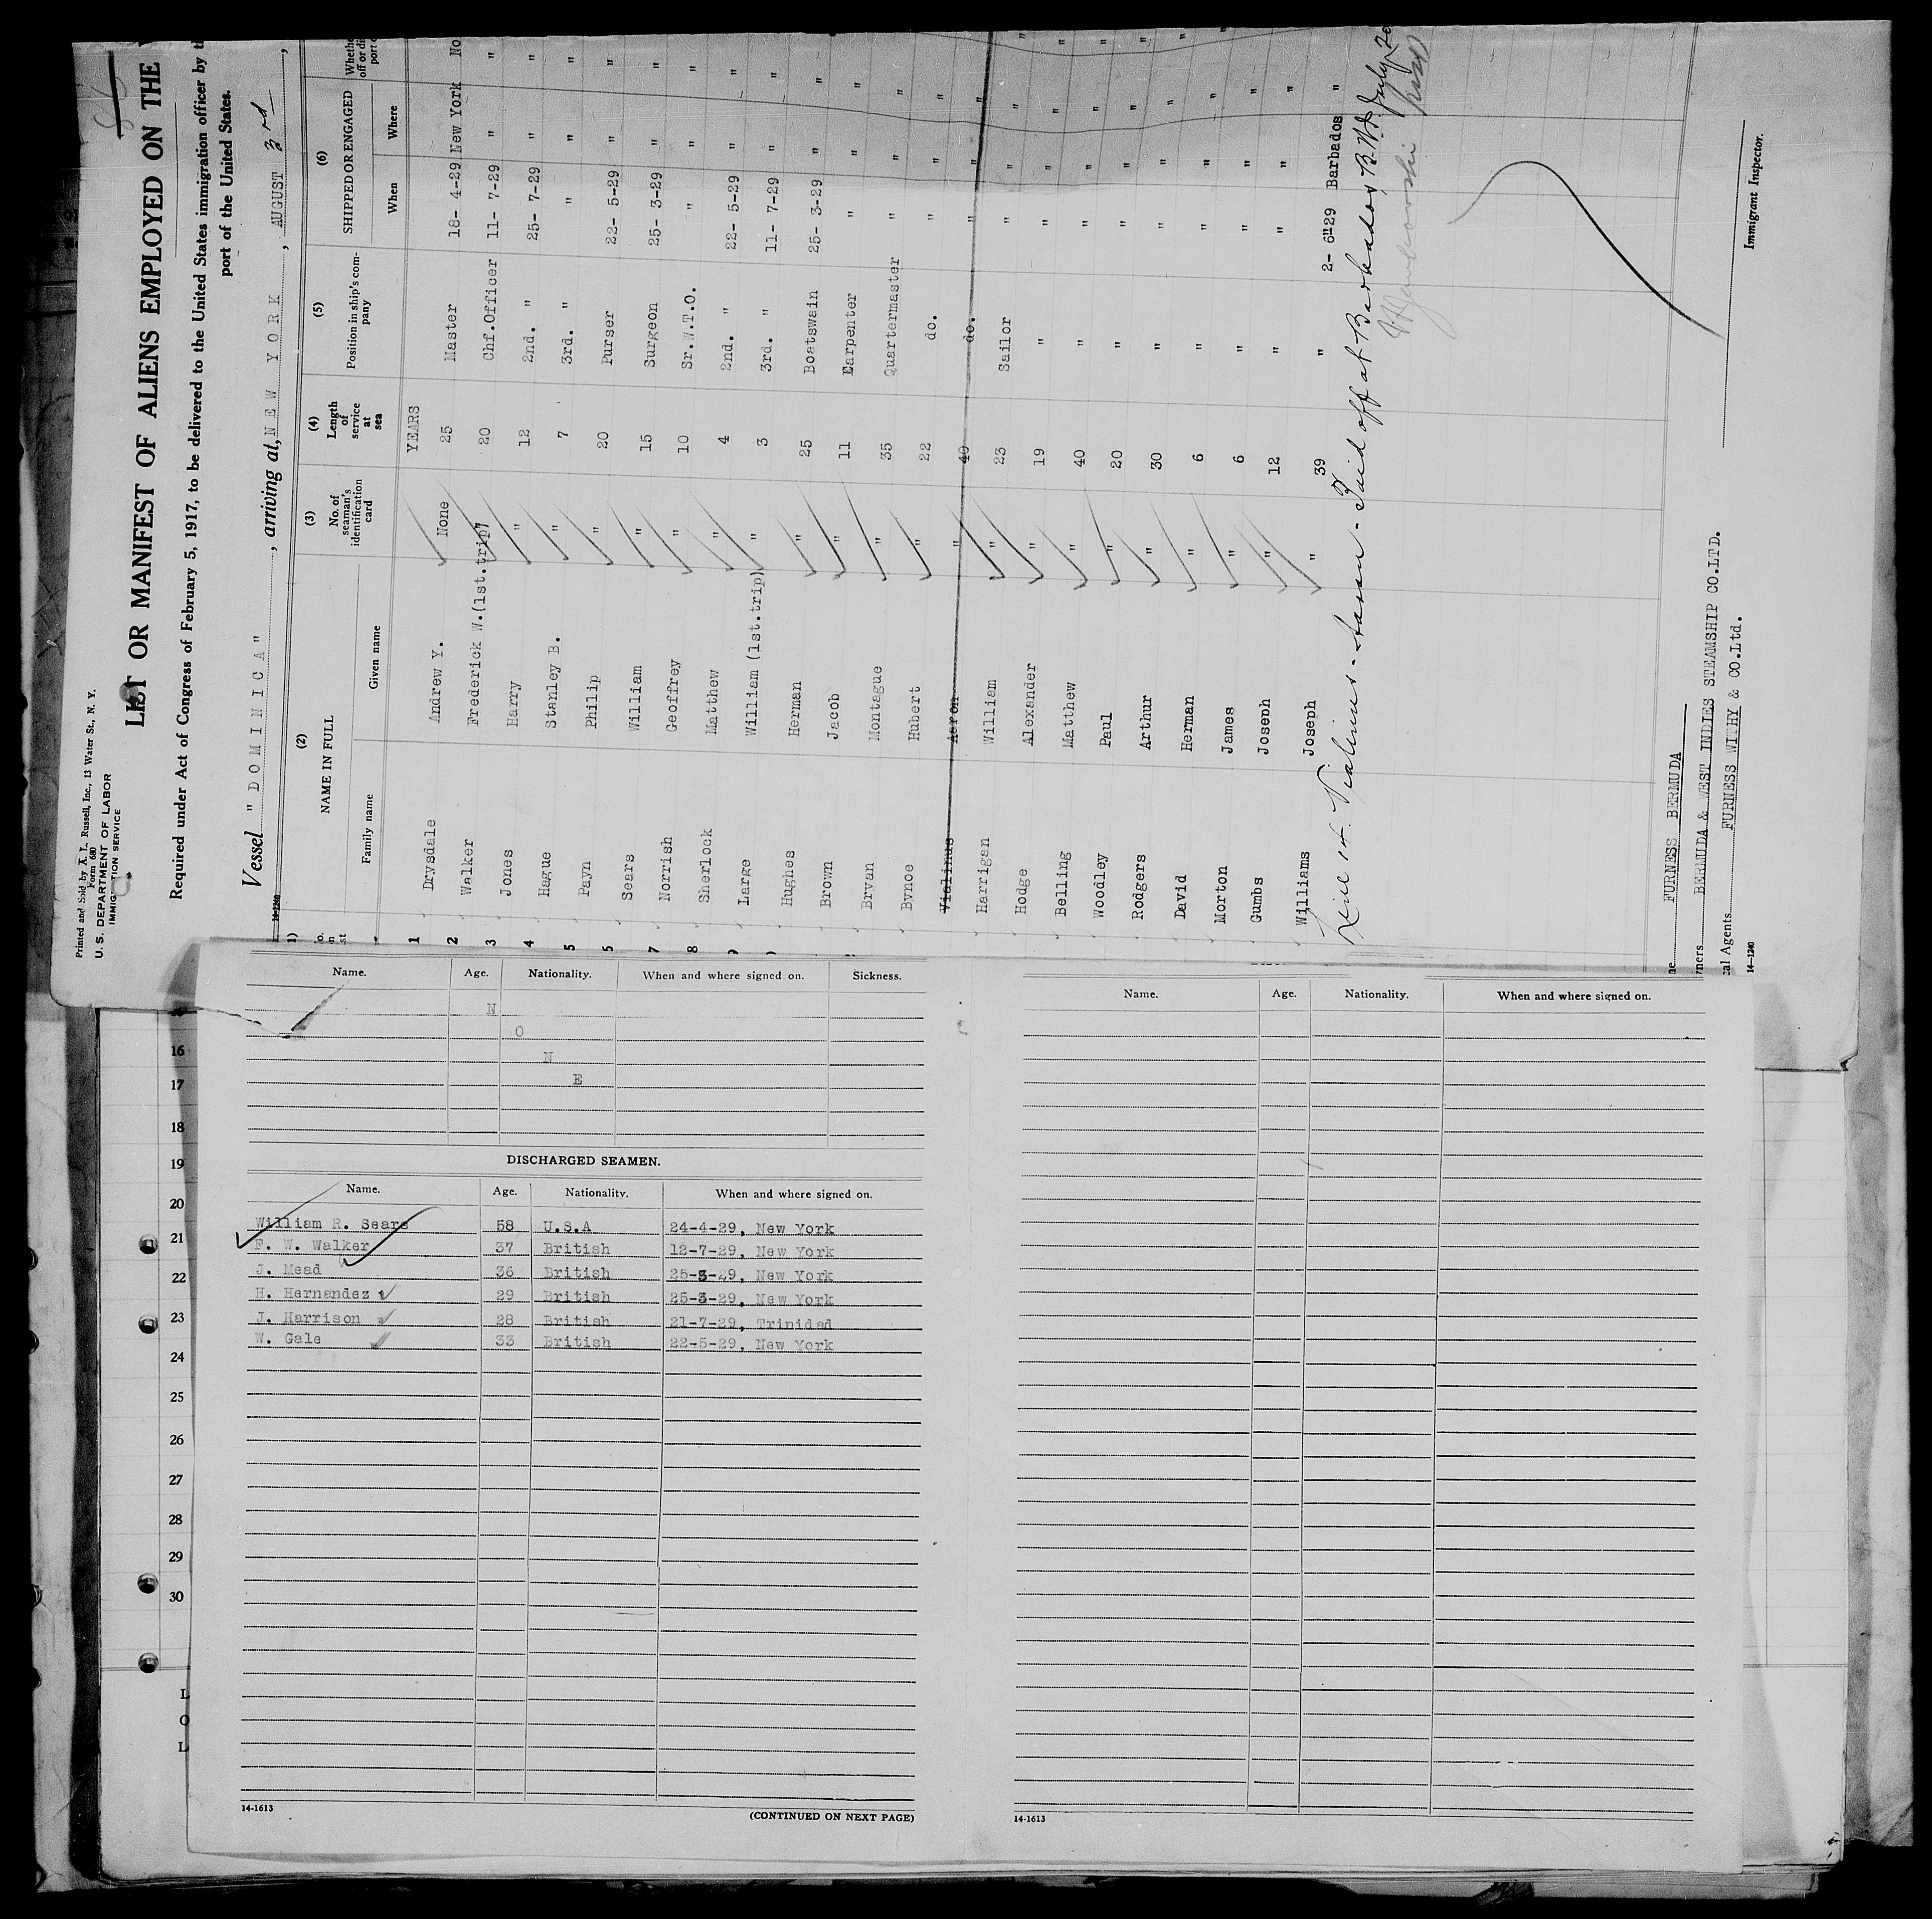 Printed and Sold by A. L. Russell, Inc., 13 Water St., N. Y.
Form 680
U. S. DEPARTMENT OF LABOR
IMMIGRATION SERVICE
LIST OR MANIFEST OF ALIENS EMPLOYED ON THE
Required under Act of Congress of February 5, 1917, to be delivered to the United States immigration officer by
port of the United States.
Vessel "DOMINICA", arriving at, NEW YORK, AUGUST 3rd,
14-1240
(2) (3) (4) (5) (6)
NAME IN FULL No. of seaman's identification card Length of service at sea Position in ship's company SHIPPED OR ENGAGED
Family name Given name When Where
YEARS
1 Drysdale Andrew Y. None 25 Master 18- 4-29 New York No
2 Walker Frederick W.(1st.trip) " 20 Chf.Officer 11- 7-29 " "
3 Jones Harry " 12 2nd. " 25- 7-29 " "
4 Hague Stanley B. " 7 3rd. " " " "
5 Payn Philip " 20 Purser 22- 5-29 " "
5 Sears William " 15 Surgeon 25- 3-29 " "
7 Norrish Geoffrey " 10 Sr.W.T.O. " " "
8 Sherlock Matthew " 4 2nd. " 22- 5-29 " "
Large William (1st.trip) " 3 3rd. " 11- 7-29 " "
Hughes Herman " 25 Boatswain 25- 3-29 " "
Brown Jacob " 11 Carpenter " " "
Bryan Montague " 35 Quartermaster " " "
Bynoe Hubert " 22 do. " " "
Vialinus Aaron " 40 do. " " "
Harrigan William " 23 Sailor " " "
Hodge Alexander " 19 " " " "
Belling Matthew " 40 " " " "
Woodley Paul " 20 " " " "
Rodgers Arthur " 30 " " " "
David Herman " 6 " " " "
Morton James " 6 " " " "
Gumbs Joseph " 12 " " " "
Williams Joseph " 39 " 2- 6"29 Barbados "
Line 14. Vialinus - Aaron - Paid off at Barbados, B.W.I. July 20
Immigrant Inspector.
FURNESS BERMUDA
BERMUDA & WEST INDIES STEAMSHIP CO.LTD.
Agents FURNESS WITHY & CO.Ltd.
14-1240
Name. Age. Nationality. When and where signed on. Sickness.
N
O
N
E
DISCHARGED SEAMEN.
Name. Age. Nationality. When and where signed on.
William R. Sears 58 U.S.A 24-4-29, New York
F. W. Walker 37 British 12-7-29, New York
J. Mead 36 British 25-3-29, New York
H. Hernandez 29 British 25-3-29, New York
J. Harrison 28 British 21-7-29, Trinidad
W. Gale 33 British 22-5-29, New York
14-1613
(CONTINUED ON NEXT PAGE)
Name. Age. Nationality. When and where signed on.
14-1613
16
17
18
19
20
21
22
23
24
25
26
27
28
29
30
L
O
L